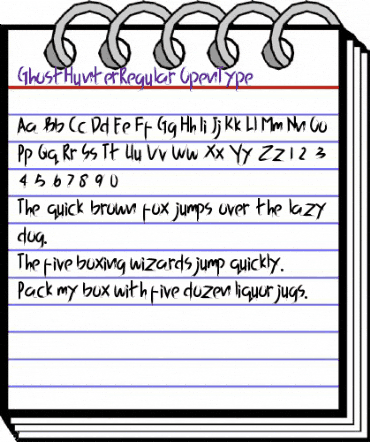 GhostHunterRegular OpenType
Aa Bb Cc Dd Ee Ff Gg Hh Ii Jj Kk Ll Mm Nn Oo
Pp Qq Rr Ss Tt Uu Vv Ww Xx Yy Zz 1 2 3
4 5 6 7 8 9 0
The quick brown fox jumps over the lazy
dog.
The five boxing wizards jump quickly.
Pack my box with five dozen liquor jugs.